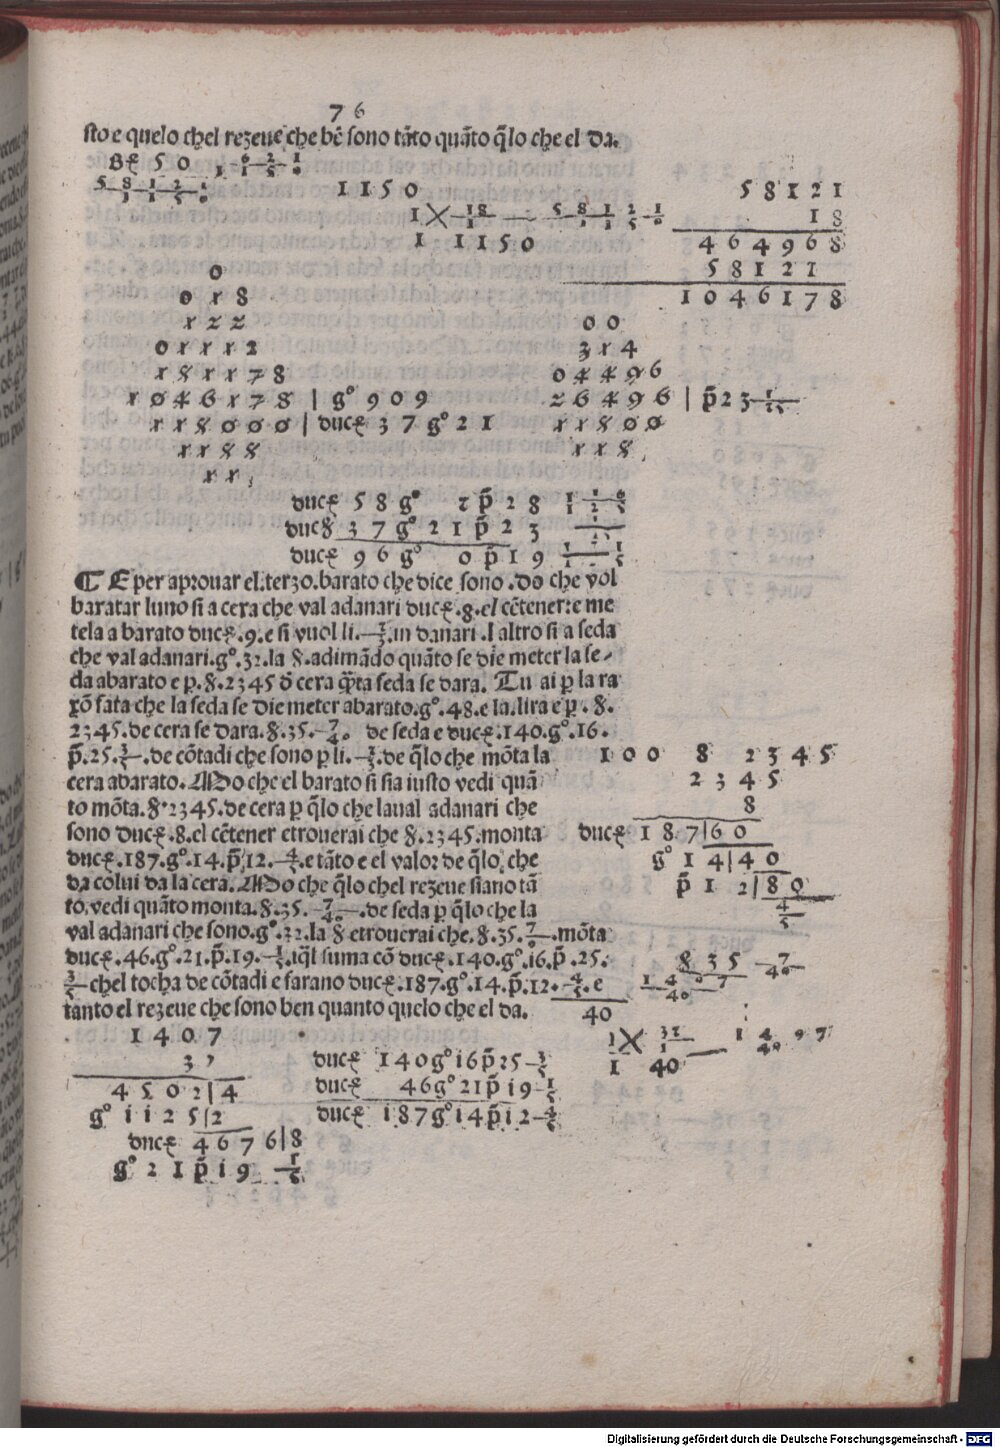 76
sto e quelo chel rezeue che bē sono tāto quāto q̄lo che el da.
50
1150 58121
1 18 18
1 1150 464968
0 58121
0 r 8 1046178
r z z 0 0
0 r r r 2 3 r 4
r 8 r r 7 8 0 4 4 9 6
r 0 4 6 r 7 8 | gº 909 2 6 4 9 6 | p̄ 23
r r 8 0 0 0 | duc̨ 37 gº 21 r r 8 0 0
r r 8 8 r r 8
r r
duc̨ 58 gº 2 p̄ 28
duc̨ 37 gº 21 p̄ 23
duc̨ 96 gº 0 p̄ 19
¶ E per aprouar el.terzo.barato che dice sono.do che vōl
baratar luno si a cera che val adanari duc̨.8.el cētener:e me
tela a barato duc̨.9.e si vuol li. in danari.l altro si a seda
che val adanari.gº.32.la ȣ.adimādo quāto se die meter la se-
da abarato e p̱.ȣ.2345 d̄ cera q̄ta seda se dara. Tu ai p̱ la ra
xō fata che la seda se die meter abarato.gº.48.e la.lira e p̱.ȣ.
2345.de cera se dara.ȣ.35. 7/40 de seda e duc̨.140.gº.16.
p̄.25. de cōtadi che sono p̱ li. de q̄lo che mōta la 100 8 2345
cera abarato. Mo che el barato si sia iusto vedi quā 2345
to mōta.ȣ.2345.de cera p̱ q̄lo che laual adanari che 8
sono duc̨.8.el cētener e trouerai che ȣ.2345.monta duc̨ 187|60
duc̨.187.gº.14.p̄.12. 4/5 .e tāto e el valor de q̄lo che gº 14|40
da colui da la cera. Mo che q̄lo chel rezeue siano tā p̄ 12|80
to.vedi quāto monta.ȣ.35. 7/40 de seda p̱ q̄lo che la 4/5
val adanari che sono.gº.32.la ȣ e trouerai che.ȣ.35. mōta
duc̨.46.gº.21.p̄.19. 1/5 .iq̄l suma cō duc̨.140.gº.16.p̄.25. 8 35 7/40
3/5 chel tocha de cōtadi e farano duc̨.187.gº.14.p̄.12. 4/5 .e
tanto el rezeue che sono ben quanto quelo che el da. 40
1407 1 1407/40
32 duc̨ 140 gº 16 p̄ 25 3/5 1 40
4502|4 duc̨ 46 gº 21 p̄ 19 1/5
gº 1125|2 duc̨ 187 gº 14 p̄ 12 4/5
duc̨ 4676|8
gº 21 p̄ 19 1/5
Digitalisierung gefördert durch die Deutsche Forschungsgemeinschaft - DFG